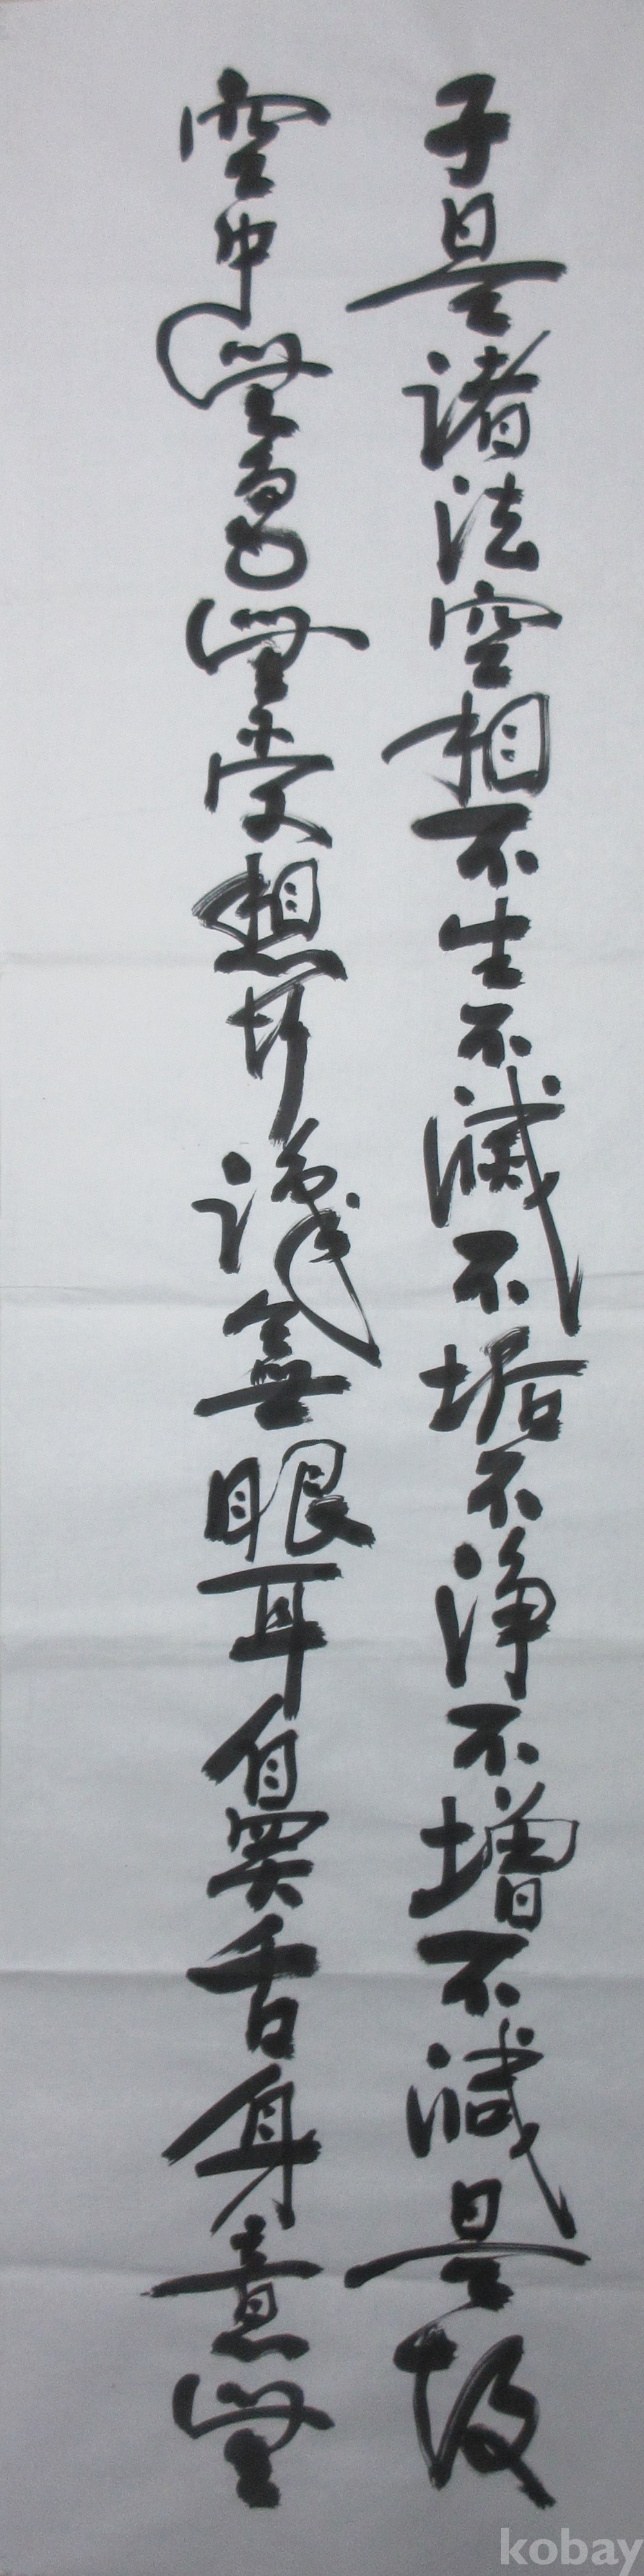 子是諸法空相不生不滅不垢不浄不増不減是故
空中無色無受想行識無眼耳鼻舌身意無
kobay